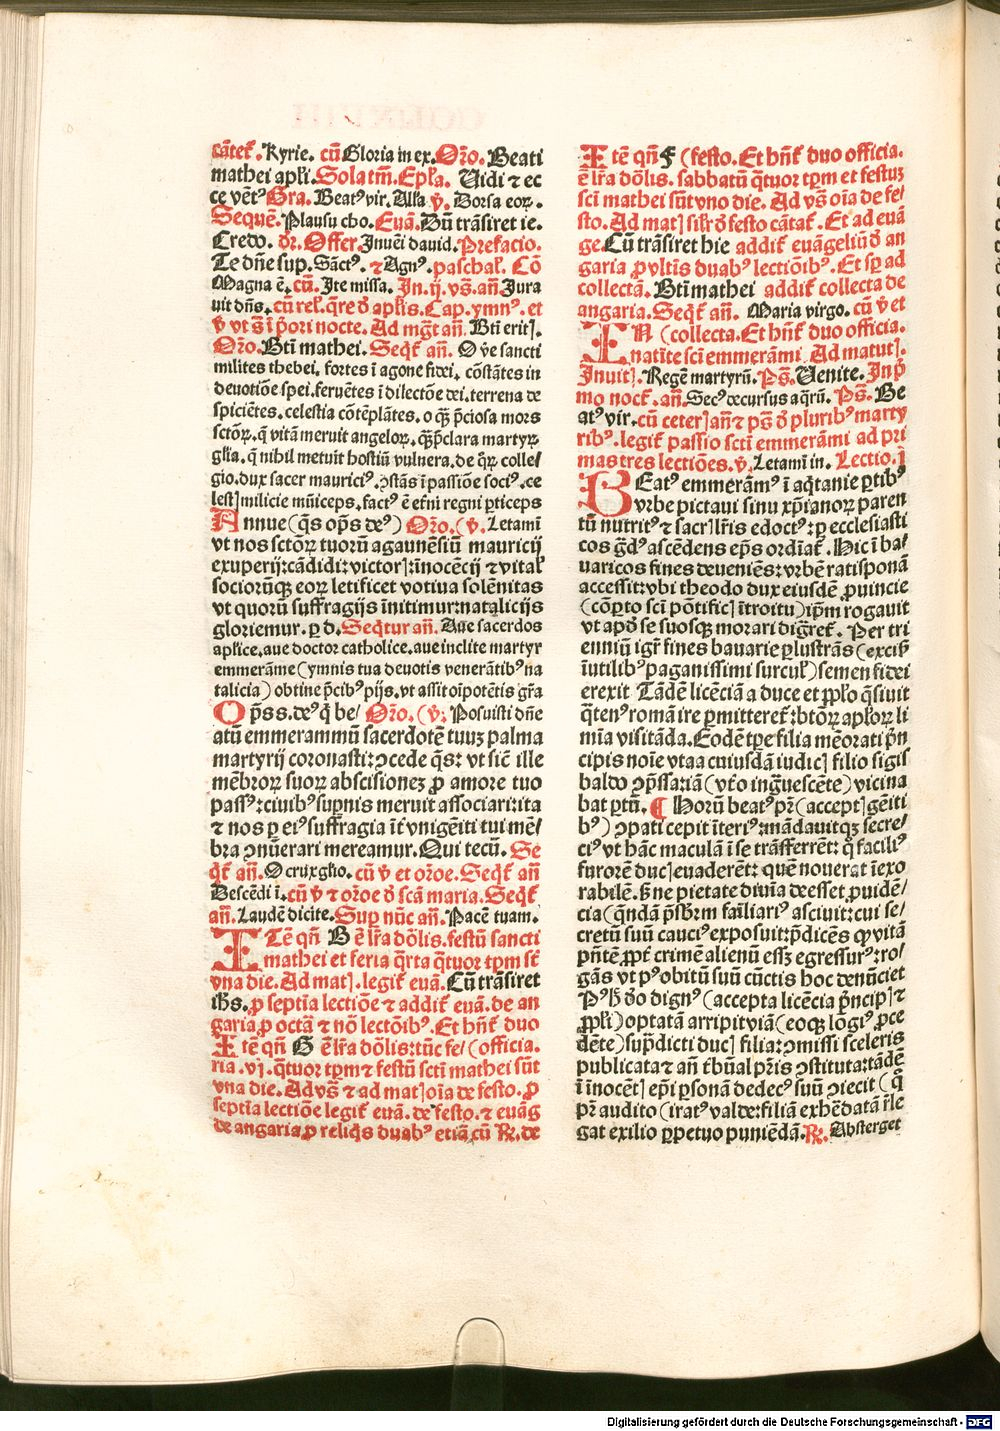 cātet᷒. Kyrie. cū Gloria in ex. Oŕo. Beati
mathei apl̄i. Sola tm̄. Epl̄a. Uidi ⁊ ec
ce vēt⁹ Gra. Beat⁹ vir. Alĺa v̄. Borsa eoꝝ.
Sequē. Plausu cho. Euā. Dū trāsiret ie.
Credo. vr̄. Offer̄ Inuēi dauid. Prefacio.
Te dn̄e sup. Sāct⁹. ⁊ Agn⁹. paschal̄. Cō
Magna ē. cū. Ite missa. In. ij. vs̄. an̄ Iura
uit dn̄s. cū rel̄. q̄re ō aplīs. Cap. ymn⁹. et
v̄ vt s̄ i p̄ori nocte. Ad mḡt an̄. Bt̄i eritꝭ.
Oŕo. Bt̄i mathei. Seq̄t᷒ an̄. O ve sancti
milites thebei. fortes ī agone fidei. cōstātes in
deuotiōe spei. feruētes ī dilectōe dei. terrena de
spiciētes. celestia cōtēplātes. o q̄ꝫ p̄ciosa mors
sctōꝝ. q̄ vitā meruit angeloꝝ. q̄ꝫ p̄clara martyꝝ
gl̄ia. q̄ nihil metuit hostiū vulnera. de q̄ꝝ colle/
gio. dux sacer maurici⁹. ꝯstās ī passiōe soci⁹. ce
lestꝭ milicie mūiceps. fact⁹ ē et̄ni regni p̄ticeps
Annue (q̄s op̄s de⁹) Oŕo. (v̄. Letamī
vt nos sctōꝝ tuorū agaunēsiū mauricij
exuperij: cādidi: victorꝭ: īnocēcij ⁊ vital᷒
sociorūqꝫ eoꝝ letificet votiua solēnitas
vt quorū suffragijs īnitimur: natalicijs
gloriemur. ꝑ d. Seq̄tur an̄. Aue sacerdos
apl̄ice. aue doctor catholice. aue inclite martyr
emmerāme (ymnis tua deuotis venerātib⁹ na
talicia) obtine p̄cib⁹ pijs. vt assit oīpotētis gr̄a
Op̄s s. de⁹ q̄ be/ Oŕo. (v̄: Posuisti dn̄e
atū emmerammū sacerdotē tuuꝫ palma
martyrij coronasti: ꝯcede q̄s: vt sic̄ ille
mēbroꝝ suoꝝ abscisionez ꝓ amore tuo
pass⁹: ciuib⁹ sup̄nis meruit associari: ita
⁊ nos ꝑ ei⁹ suffragia īt᷒ vnigēiti tui mē/
bra ꝯnūerari mereamur. Qui tecū. Se
q̄t᷒ an̄. O crux gl̄io. cū v̄ et oŕoe. Seq̄t᷒ an̄
Descēdi ī. cū v̄ ⁊ oŕoe ō scā maria. Seq̄t᷒
an̄. Laudē dicite. Suꝑ nūc an̄. Pacē tuam.
ITē qn̄ B ē lr̄a dōlis. festū sancti
mathei et feria q̄rta q̄tuor tꝑm st᷒
vna die. Ad matꝭ. legit᷒ euā. Cū trāsiret
ihs. ꝓ septīa lectiōe ⁊ addit᷒ euā. de an
garia ꝓ octā ⁊ nō lectōib⁹. Et hn̄t᷒ duo
Itē qn̄ G ē lr̄a dōlis: tūc fe/ (officia.
ria. vj. q̄tuor tꝑm ⁊ festū sctī mathei sūt
vna die. Ad vs̄ ⁊ ad matꝭ oīa de festo. ꝓ
septīa lectiōe legit᷒ euā. de festo. ⁊ euāg
de angaria ꝓ reliq̄s duab⁹ etiā cū ℟. de
Itē qn̄ F (festo. Et hn̄t᷒ duo officia.
ē lr̄a dōlis. sabbatū q̄tuor tꝑm et festuꝫ
sci mathei sūt vno die. Ad vs̄ oīa de fe/
sto. Ad matꝭ sil̄r ō festo cātat᷒. Et ad euā
ge. Cū trāsiret hie addit᷒ euāgeliū ō an
garia ꝓ vltīs duab⁹ lectiōib⁹. Et sꝑ ad
collectā. Bt̄i mathei addit᷒ collecta de
angaria. Seq̄t᷒ an̄. Maria virgo. cū v̄ et
IN (collecta. Et hn̄t᷒ duo officia.
natīte scī emmerāmi Ad matutꝭ.
Inuitꝭ. Regē martyrū. Ps̄. Uenite. In p̄
mo noct᷒. an̄. Sec⁹ decursus aq̄rū. Ps̄. Be
at⁹ vir. cū ceterꝭ an̄ ⁊ ps̄ ō plurib⁹ marty
rib⁹. legit᷒ passio sctī emmerāmi ad pri
mas tres lectiōes. v̄. Letamī in. Lectio. j
BEat⁹ emmerām⁹ ī aq̄tanie ꝑtib⁹
vrbe pictaui sinu xp̄ianoꝝ paren
tū nutrit⁹ ⁊ sacrꝭ lr̄is edoct⁹: ꝑ ecclesiasti
cos gd̄⁹ ascēdens ep̄s ordīat᷒. Hic ī ba/
uaricos fines deueniēs: vrbē ratisponā
accessit: vbi theodo dux eiusdē ꝓuincie
(cōꝑto scī pōtificꝭ ītroitu) ip̄m rogauit
vt apđ se suosqꝫ morari digret᷒. Per tri
enniū igr̄ fines bauarie ꝑlustrās (excib᷒
īutilib⁹ paganissimi surcul᷒) semen fidei
erexit Tādē licēciā a duce et pp̄lo q̄siuit
q̄ten⁹ romā ire ꝑmitteret᷒: btōꝝ apl̄oꝝ li
mīa visitāda. Eodē tꝑe filia mēorati p̄n
cipis noīe vtaa cuiusdā iudicꝭ filio sigis
baldo ꝯp̄ssa: iā (vt᷒o ingͥuescēte) vicina
bat ꝑtū. ¶ Horū beat⁹ pr̄ (acceptꝭ gēiti
b⁹) ꝯpati cepit īteri⁹: mādauitqꝫ secre/
ci⁹ vt hāc maculā ī se trāsferrēt: q̄ facili⁹
furorē ducꝭ euaderēt: quē nouerat īexo
rabilē. Sꝫ ne pietate diuīa deesset ꝓuidē/
cia (quādā p̄sb̄rm fail̄iari⁹ asciuit: cui se/
cretū suū cauci⁹ exposuit: p̄dicēs qꝙ vitā
pn̄tē ꝓpt᷒ crimē alienū essꝫ egressur⁹: ro/
gās vt p⁹ obitū suū cūctis hoc denūciet
P⁹ h᷒ ōo dign⁹ (accepta licēcia p̄ncipꝭ ⁊
pp̄li) optatā arripit viā (eoqꝫ lōgi⁹ ꝓce
dēte) sup̄dicti ducꝭ filia: ꝯmissi sceleris
publicata ⁊ an̄ t᷒būal pr̄is ꝯstituta: tādē
ī inocētꝭ ep̄i ꝑsonā dedec⁹ suū ꝯiecit (q̄
pr̄ audito (irat⁹ valde: filiā exhēdatā īr̄le
gat exilio ꝑpetuo puniēdā. ℟. Absterget
Digitalisierung gefördert durch die Deutsche Forschungsgemeinschaft - DFG